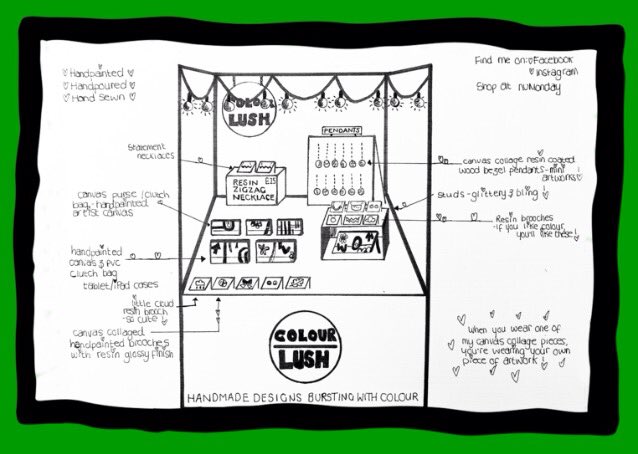 Handpainted
Handpoured
Hand Sewn
Find me on: Facebook
Instagram
Shop at nuMonday
COLOUR
LUSH
PENDANTS
Statement
necklaces
RESIN £15
ZIGZAG
NECKLACE
canvas collage resin coated
wood bezel pendants - mini
artworks
canvas purse / clutch
bag - handpainted
artist canvas
studs - glittery & bling!
Resin brooches
- if you like colour
you'll like these!
handpainted
canvas & PVC
clutch bag
tablet/iPad cases
little cloud
resin brooch
- so cute!
canvas collaged
handpainted brooches
with resin glossy finish
COLOUR
LUSH
when you wear one of
my canvas collage pieces,
you're wearing your own
piece of artwork!
HANDMADE DESIGNS BURSTING WITH COLOUR